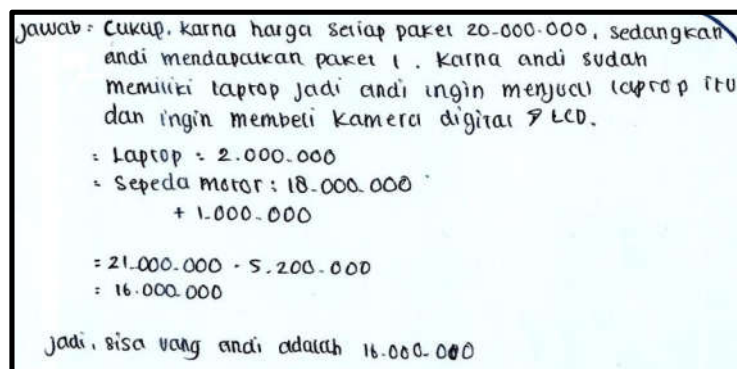 Jawab : Cukup, karna harga setiap paket 20.000.000, sedangkan
andi mendapatkan paket 1. Karna andi sudah
memiliki laptop jadi andi ingin menjual laptop itu
dan ingin membeli kamera digital & LCD.
= Laptop : 2.000.000
= Sepeda motor : 18.000.000
+ 1.000.000
= 21.000.000 - 5.200.000
= 16.000.000
Jadi, sisa uang andi adalah 16.000.000